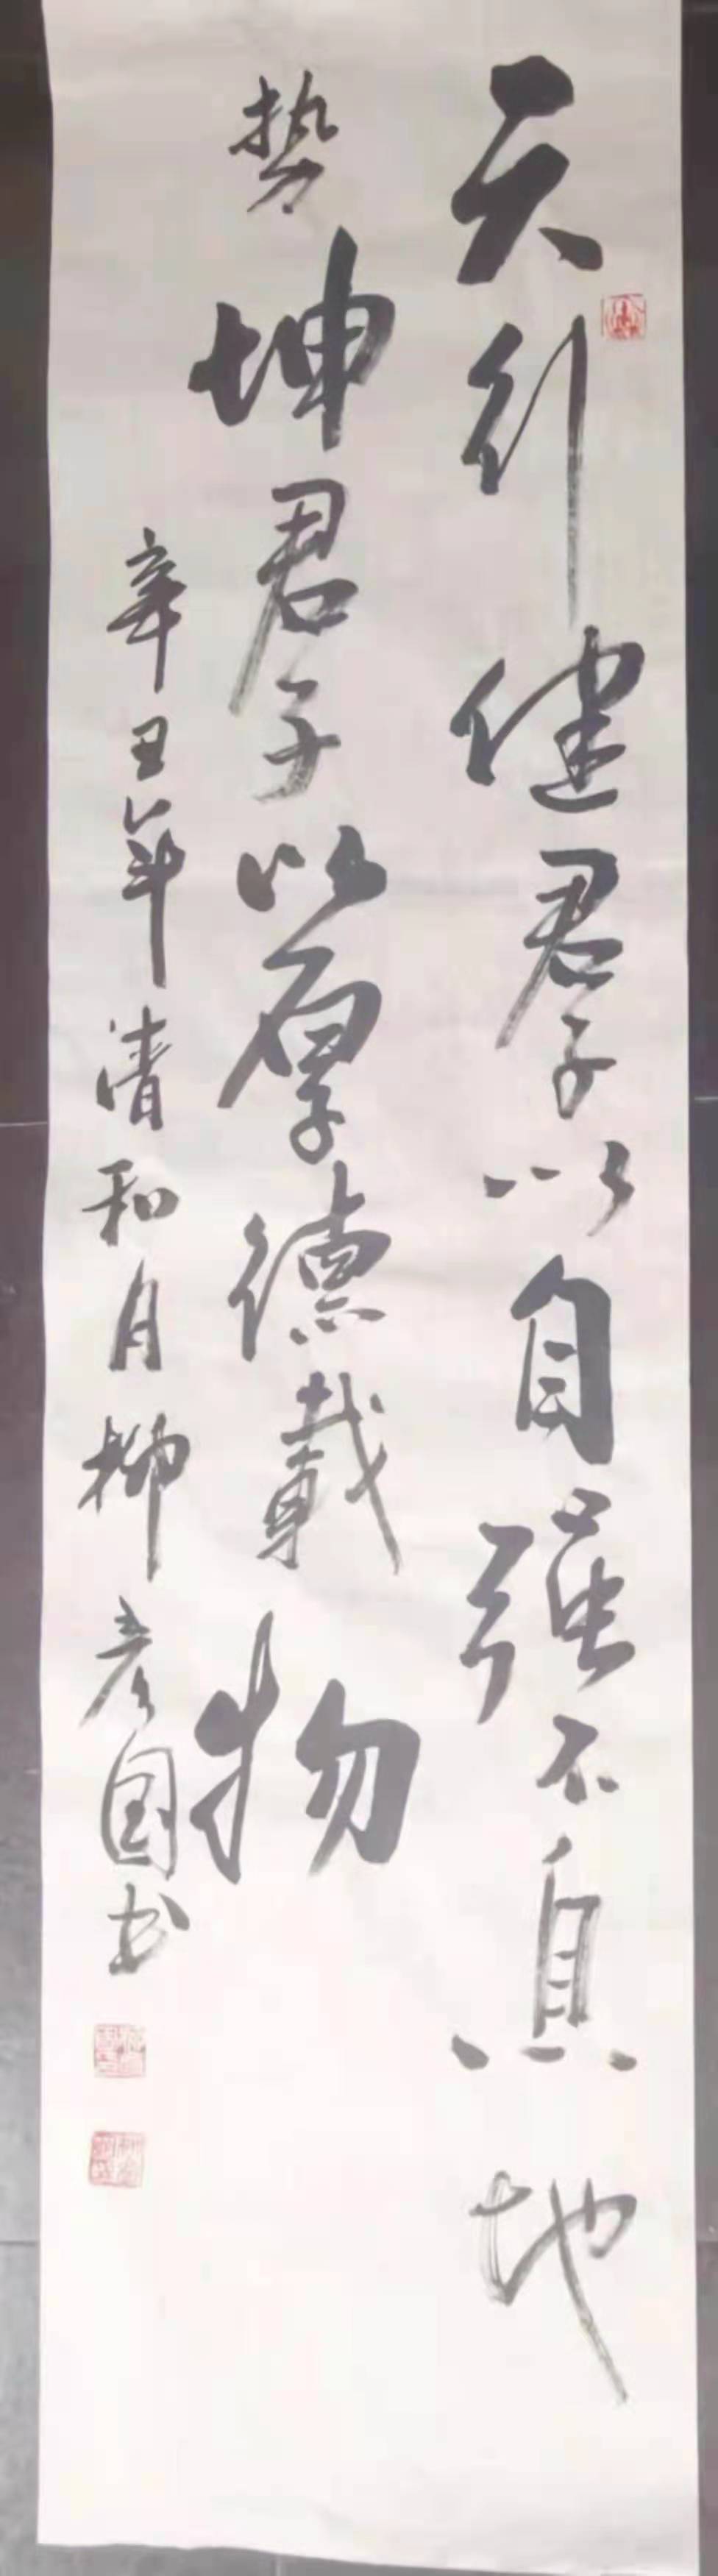 天行健君子以自强不息地
势坤君子以厚德载物
辛丑年清和月柳彦国书